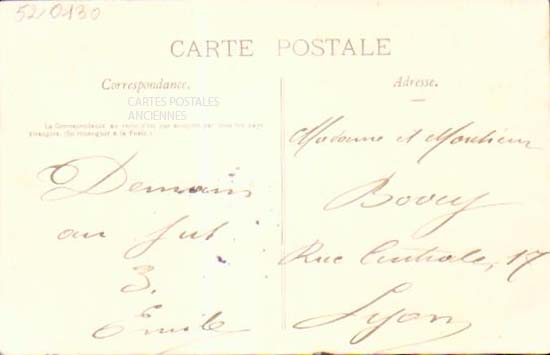 52/0130
CARTE POSTALE
Correspondance.
Adresse.
CARTES POSTALES
ANCIENNES
La Correspondance au recto n'est pas acceptée par tous les pays
étrangers. (Se renseigner à la Poste.)
Madame et Monsieur
Demain
Bovey
au
Rue Centrale, 17
3.
Lyon
Émile